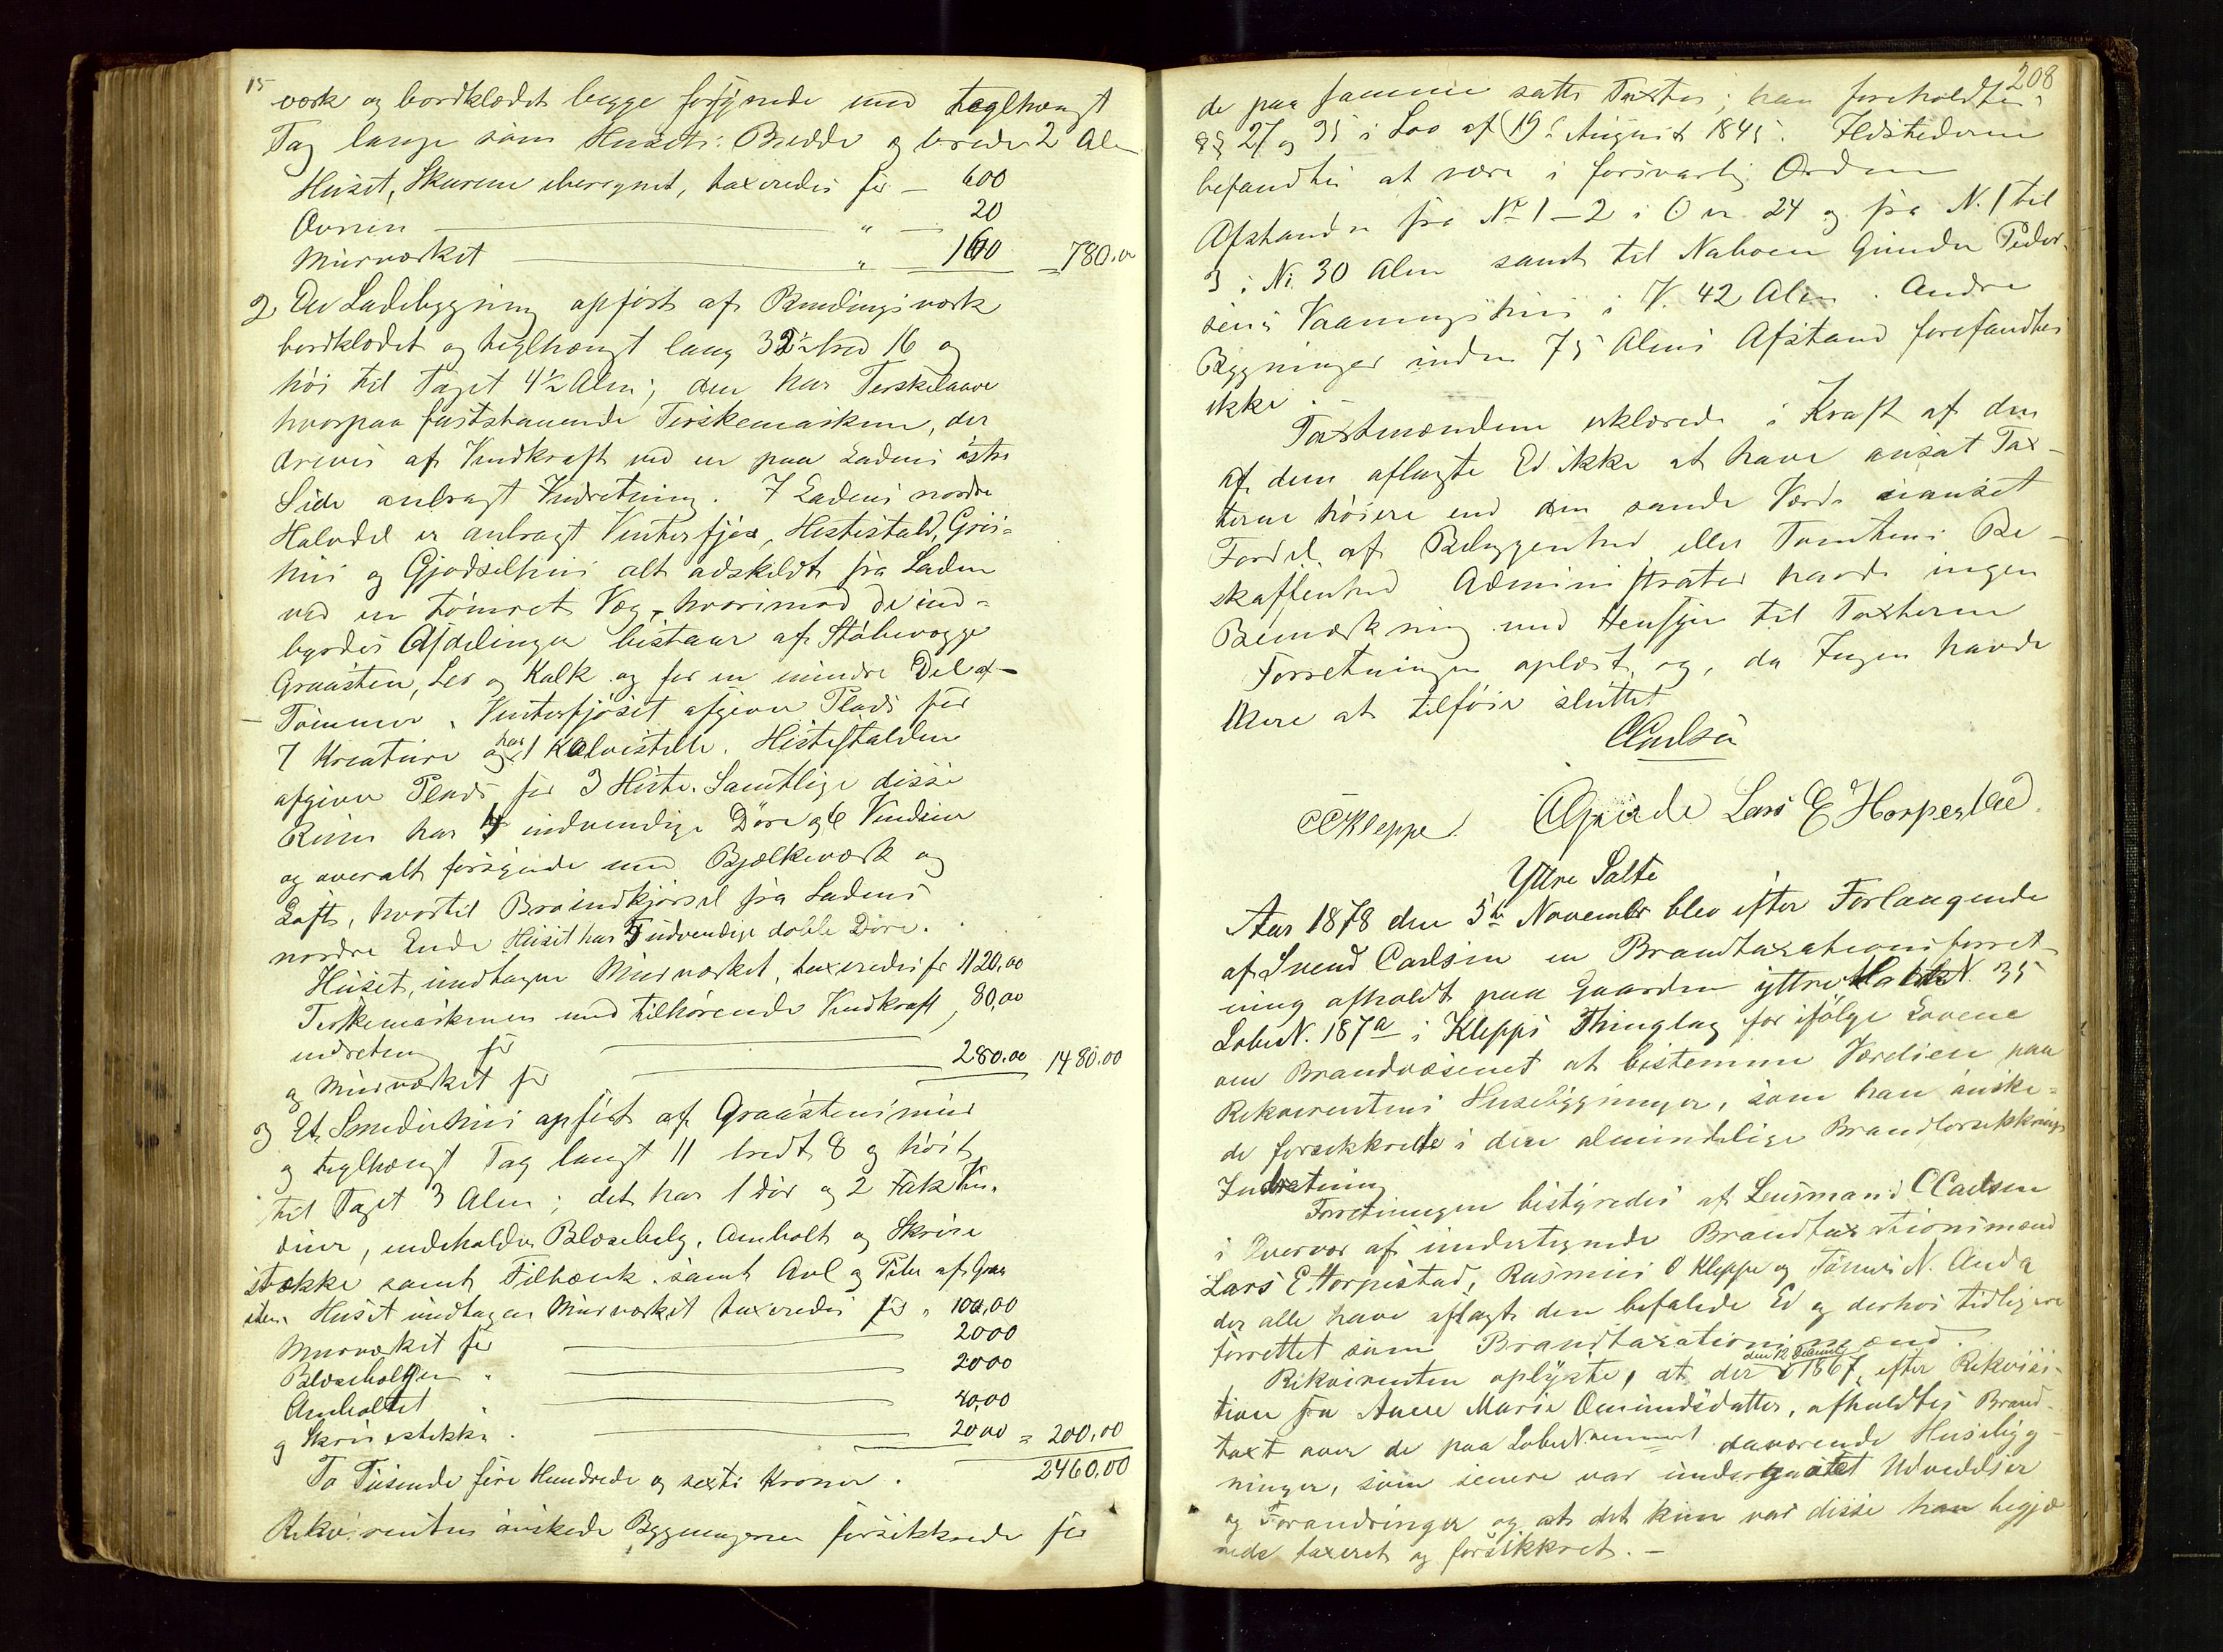 15
værk og bordklædt begge forsynede med teglhængt
Tag lange som Husets Bredde og brede 2 Alen
Huset, Skurene iberegnet, taxeredes for — 600
Ovnen — " — 20
Murværket — " — 160 = 780.00
2, En Ladebygning opført af Bindingsværk
bordklædt og teglhængt lang 32½ bred 16 og
høi til Taget 4½ Alen; den har Terskelaave
hvorpaa faststaaende Terskemaskine, der
drives af Vindkraft ved en paa Ladens østre
Side anbragt Indretning. I Ladens nordre
Halvdel er anbragt Vinterfjøs, Hestestald, Gris-
hus og Gjødselhus alt adskildt fra Laden
ved en tømret Væg, hvorimod de ind-
byrdes Afdelinger bestaar af Stålvægge
Graasten, Ler og Kalk og for en mindre Del af
Tømmer. Vinterfjøset afgiver Plads for
7 Kreature og har 1 Kalvestelle. Hestestalden
afgiver Plads for 3 Heste. Samtlige disse
Rum har 4 indvendige Døre og 6 Vinduer
og overalt forsynede med Bjælkeværk og
Loft, hvortil Broindkjørsel fra Ladens
nordre Ende. Huset har 5 udvendige doble Døre.
Huset, undtagen Murværket, taxeredes for 1120,00
Terskemaskinen med tilhørende Vindkraft, 80,00
indretning for
og Murværket for — 280.00 1480.00
3 Et Smedehus opført af Graastensmur
og teglhængt Tag langt 11 bredt 8 og høit
til Taget 3 Alen; det har 1 Dør og 2 Fak Vin-
duer, indeholder Blæsebelg, Ambolt og Skrue
stække samt Filbænk samt Avl og Pibe af Graa
sten. Huset undtagen Murværket taxeredes for " 100,00
Murværket for — 2000
Blæsebelgen " — 2000
Amboltet " — 40,00
og Skruestikke " — 2000 = 200,00
2460,00
To Tusende fire Hundrede og sexti Kroner.
Rekvirenten ønskede Bygningerne forsikkrede for
208
de paa samme satte Taxter; han foreholdtes
§§ 27 og 35 i Lov af 19de August 1845. Ildstederne
befandtes at være i forsvarlig Orden
Afstanden fra No 1–2 i O er 24 og fra N. 1 til
3 i N. 30 Alen samt til Naboen Gunder Peder-
sens Vaaningshus i V. 42 Alen. Andre
Bygninger inden 75 Alens Afstand forefandtes
ikke.
Taxtmændene erklærede i Kraft af den
af dem aflagte Ed ikke at have ansat Tax-
terne høiere end den sande Værdi uanset
Fordel af Beliggenhed eller Tomtens Be-
skaffenhed Administrator havde ingen
Bemærkning med Hensyn til Taxterne
Forretningen oplæst, og, da Ingen havde
Mere at tilføie sluttet
CCarlsen
Lars E Horpestad
Yttre Salte
Aar 1878 den 5te November blev efter Forlangende
af Svend Carlsen en Brandtaxationsforret-
ning afholdt paa Gaarden yttre Salte N. 35
LøbeN. 187a i Klepps Thinglag for ifølge Lovene
om Brandvæsenet at bestemme Værdien paa
Rekvirentens Husebygninger, som han ønske-
de forsikkrede i den almindelige Brandforsikkrings
Indretning
Forretningen bestyredes af Lensmand CCarlsen
i Overvær af undertegnede Brandtaxationsmænd
Lars E. Horpestad, Rasmus O Kleppe og Tønnes N. Anda
der alle have aflagt den befalede Ed og derhos tidligere
forrettet som Brandtaxationsmænd.
Rekvirenten oplyste, at der den 12 December 1867, efter Rekvisi-
tion fra Anne Marie Omundsdatter, afholdtes Brand-
taxt over de paa LøbeNummeret daværende Husebyg-
ninger, som senere var undergaaet Udvidelser
og Forandringer og at det kun var disse han begjæ
rede taxeret og forsikkret. —